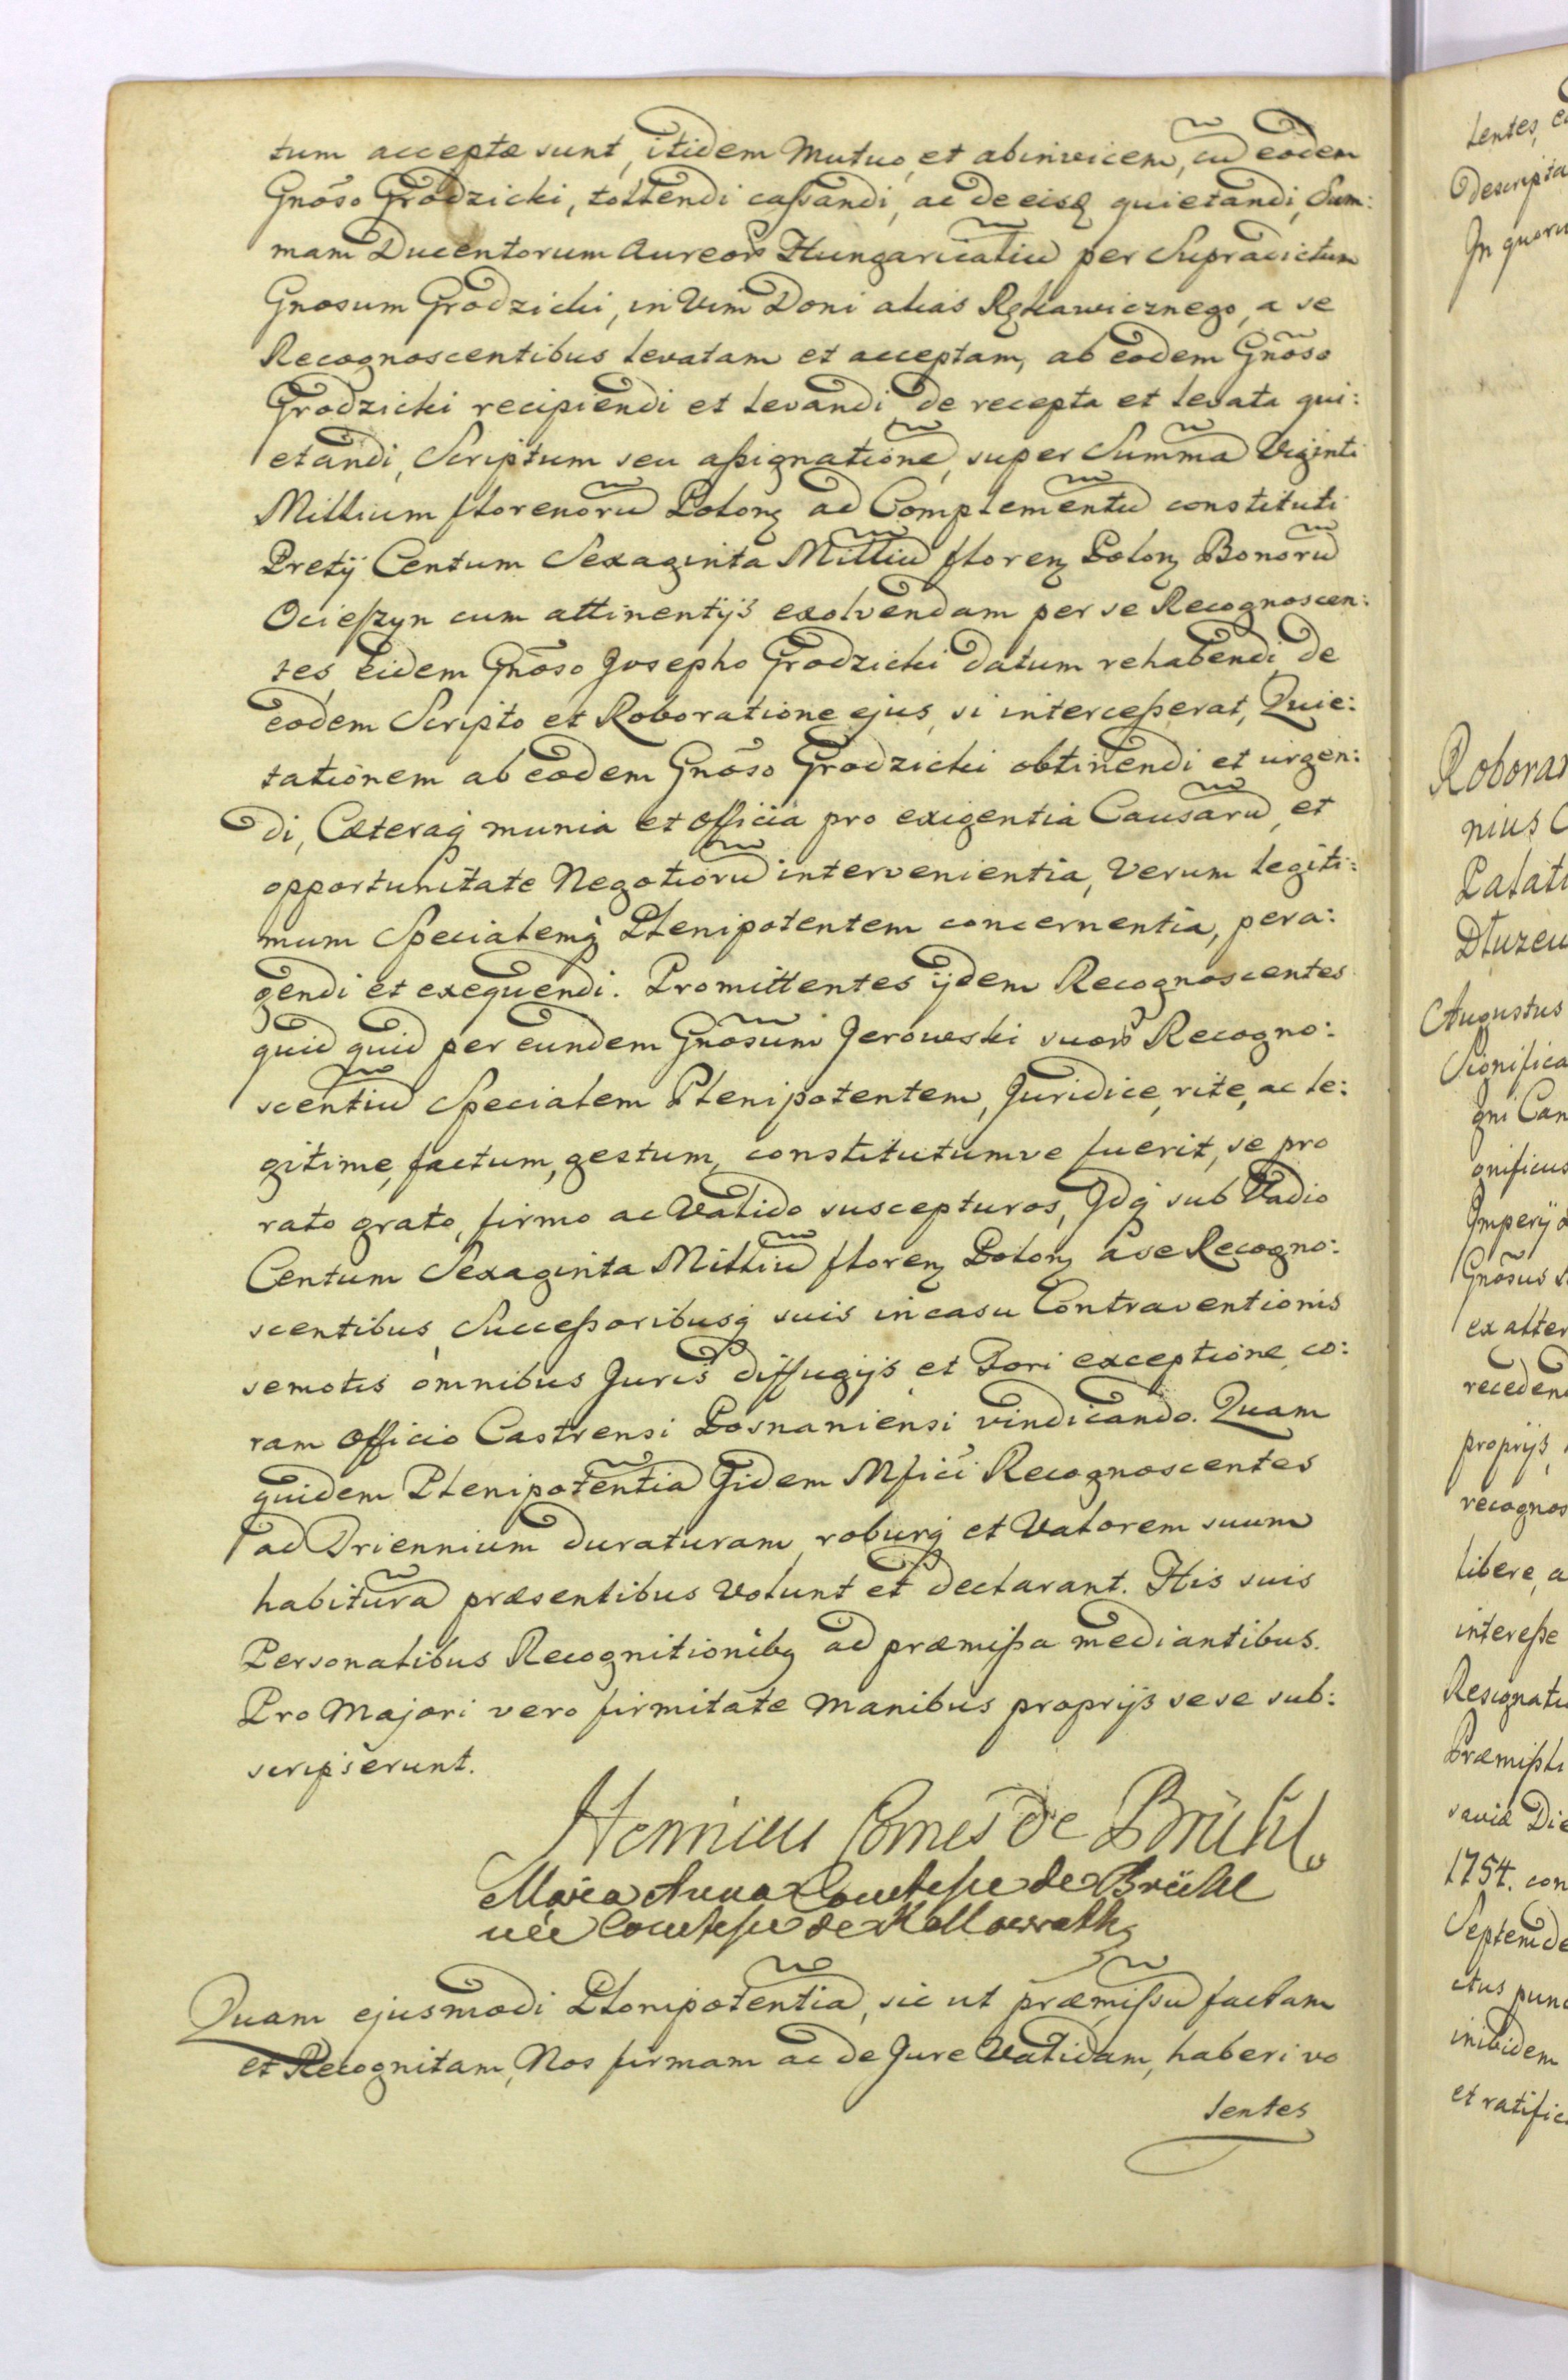 tum acceptæ sunt, itidem Mutuo, et abinvicem, cū eodem
Gnōso Grodzicki, tollendi cassandi, ac de eisq quietandi, Sum:
mam Ducentorum Aureoꝝ Hungaricaliū per Supradictum
Gnosum Grodzicki, in Vim Doni alias Rękawicznego, a se
Recognoscentibus levatam et acceptam, ab eodem Gnōso
Grodzicki recipiendi et levandi, de recepta et levata qui:
etandi, Scriptum seu assignationē, super Summā Viginti
Millium florenorū Polonꝫ ad Complementū constituti
Pretij Centum Sexaginta Milliū florenꝫ Polonꝫ Bonorū
Ociesszyn cum attinentijs exolvendam per se Recognoscen:
tes, eidem Gnōso Josepho Grodzicki datum rehabendi, de
eodem Scripto et Roboratione ejus, si intercesserat, Quie:
tationem ab eodem Gnōso Grodzicki obtinendi et urgen:
di, Cæteraq munia et officia pro exigentia Causarū, et
opportunitate Negotiorū intervenientia, Verum legiti:
mum Specialemq Plenipotentem concernentia, pera:
gendi et exequendi. Promittentes ijdem Recognoscentes
quid quid per eundem Gnōsum Jerowski suoꝝ Recogno:
scentiū Specialem Plenipotentem, Juridice, rite, ac le:
gitime, factum, gestum, constitutumve fuerit, se pro
rato grato, firmo ac Valido suscepturos, Idq sub Vadio
Centum Sexaginta Milliū florenꝫ Polonꝫ a se Recogno:
scentibus, Successoribusq suis in casu Contraventionis
semotis omnibus Juris diffugijs et Fori exceptione, co:
ram Officio Castrensi Posnaniensi vindicando. Quam
quidem Plenipotentiā Iidem Mfici Recognoscentes
ad Triennium duraturam, roburq et Valorem suum
habiturā præsentibus Volunt et declarant. His suis
Personalibus Recognitionibꝫ ad præmissa mediantibus.
Pro Majori vero firmitate Manibus proprijs sese sub:
scripserunt.
Henricus Comes de Brühl
Maria Anna Comtesse de Brühl
née Comtesse de Kollowrath
Quam ejusmodi Plenipotentiā, sic ut præmissū factam
et Recognitam, Nos firmam ac de Jure Validam, haberi vo
lentes
lentes,
descripta
In quoru
Roborar
nius C
Palati
Dłuzew
Augustus
Significa
gni Can
gnificus
Imperij
Gnōsus
ex alter
recedend
proprijs,
recognos
libere, a
interesse
Resignati
Præmissi
saviæ Die
1754. con
Septemde
ctus punc
inibidem
et ratific